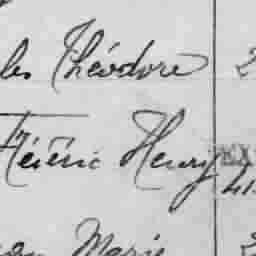 les Théodore 2
Frédéric Henry 41
Marie 2